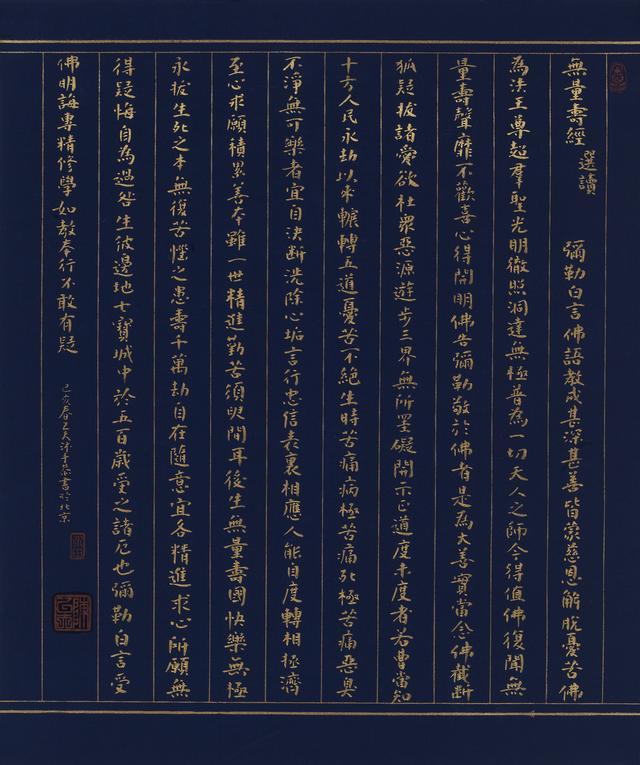 無量壽經 選讀 彌勒白言佛語教戒甚深甚善皆蒙慈恩解脫憂苦佛
為法王尊超羣聖光明徹照洞達無極普為一切天人之師今得值佛復聞無
量壽聲靡不歡喜心得開明佛告彌勒敬於佛者是為大善實當念佛截斷
狐疑拔諸愛欲杜眾惡源遊步三界無所罣礙開示正道度未度者若曹當知
十方人民永劫以來輾轉五道憂苦不絕生時苦痛病極苦痛死極苦痛惡臭
不淨無可樂者宜自決斷洗除心垢言行忠信表裏相應人能自度轉相拯濟
至心求願積累善本雖一世精進勤苦須臾間耳後生無量壽國快樂無極
永拔生死之本無復苦惱之患壽千萬劫自在隨意宜各精進求心所願無
得疑悔自為過咎生彼邊地七寶城中於五百歲受之諸厄也彌勒白言受
佛明誨專精修學如教奉行不敢有疑
己亥春 書於北京